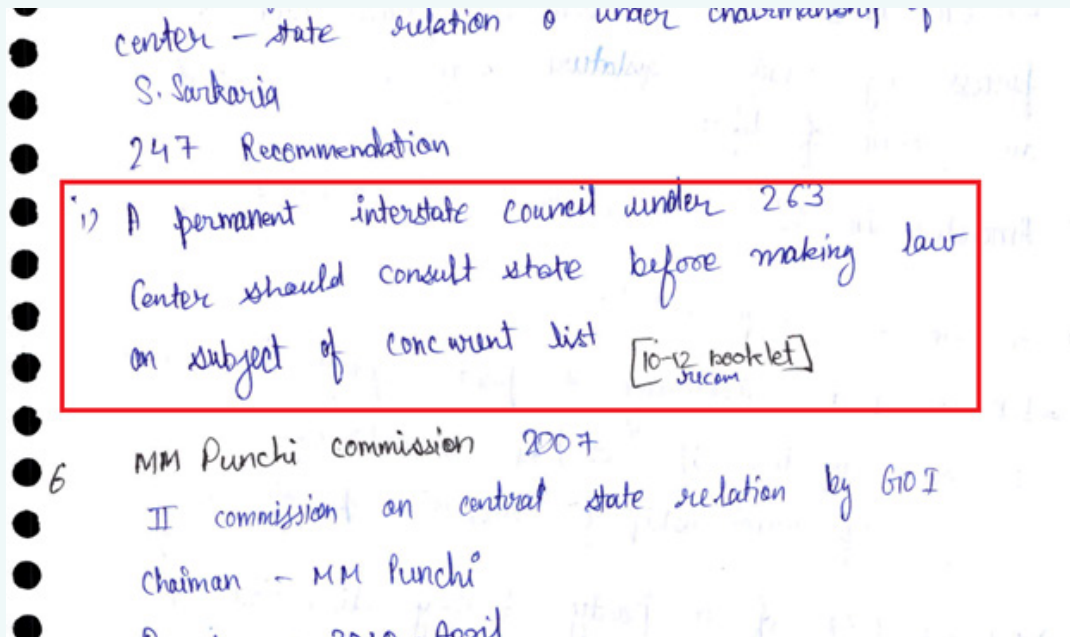 center - state relation o under chairmanship of
S. Sarkaria
247 Recommendation
i) A permanent interstate council under 263
Center should consult state before making law
on subject of concurent list [10-12 booklet]
recom
6 MM Punchi commission 2007
II commission on central state relation by GOI
Chaiman - MM Punchi
2010 April